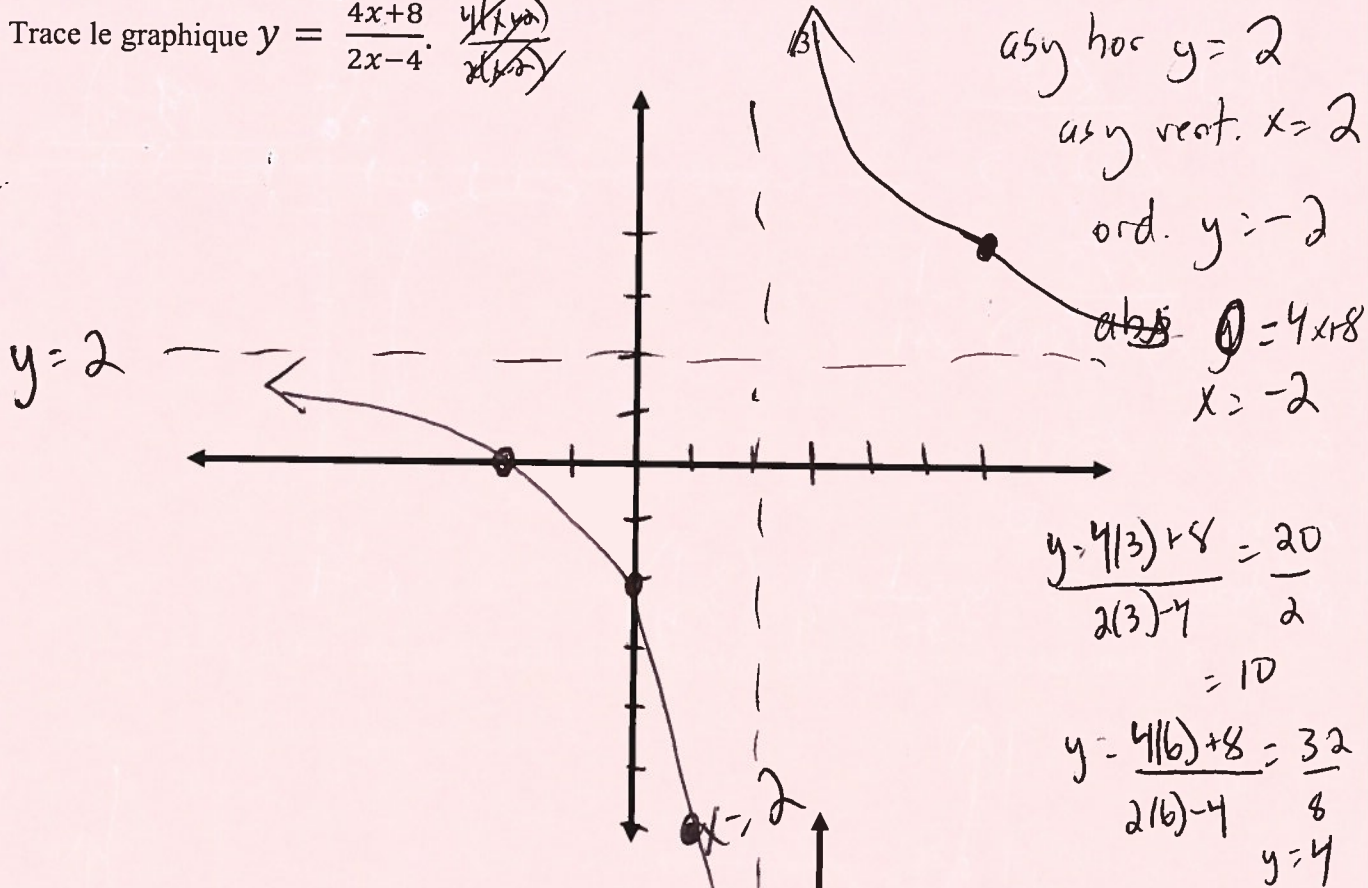 Trace le graphique y = 4x+8 / 2x−4. 4(x+2) / 2(x-2)
asy hor y = 2
asy vert. x = 2
ord. y = -2
abs. 0 = 4x+8
x = -2
y = 2
y = 4(3)+8 / 2(3)-4 = 20 / 2
= 10
y = 4(6)+8 / 2(6)-4 = 32 / 8
y = 4
x = 2